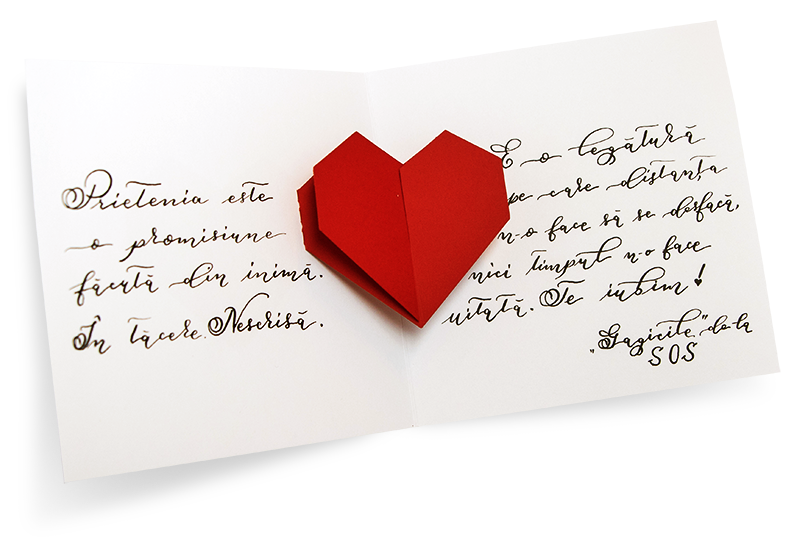 Prietenia este
o promisiune
făcută din inimă.
În tăcere. Nescrisă.
E o legătură
pe care distanța
n-o face să se desfacă,
nici timpul n-o face
uitată. Te iubim!
„Gagicile” de la
SOS